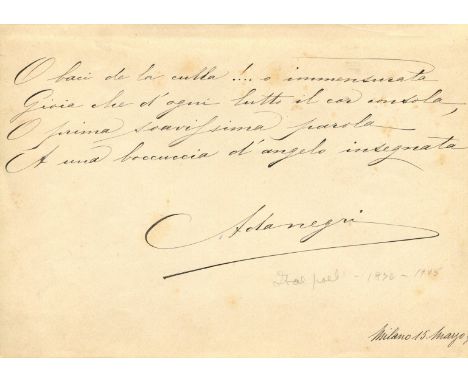 O baci de la culla!.... o immensurata
Gioia che d'ogni lutto il cor consola,
O prima soavissima parola
A una boccuccia d'angelo insegnata
Ada Negri
Ital poet - 1870 - 1945
Milano 15 Mayo